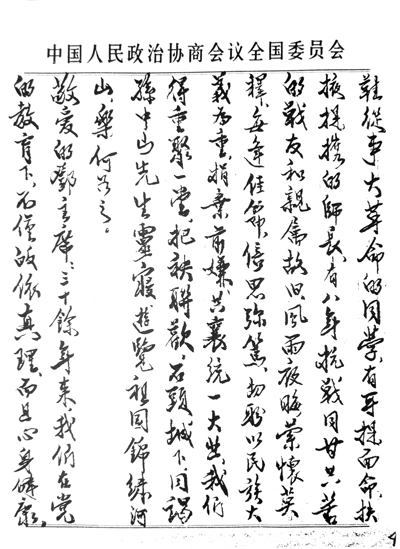 中国人民政治协商会议全国委员会
鞋從事大革命的同學,有耳提面命、扶
掖提携的師長,有八年抗戰同甘共苦
的戰友和親属故旧。風雨夜晦,縈懷莫
釋,每逢佳節,倍思弥篤。切盼以民族大
義為重,捐棄前嫌,共襄統一大业。我們
得重聚一堂,把袂聯歡,石頭城下,同謁
孫中山先生靈寝,遊覽祖国錦綉河
山,樂何如之。
敬爱的鄧主席:三十餘年来,我們在党
的教育下,不僅皈依真理,而且心身健康,
4